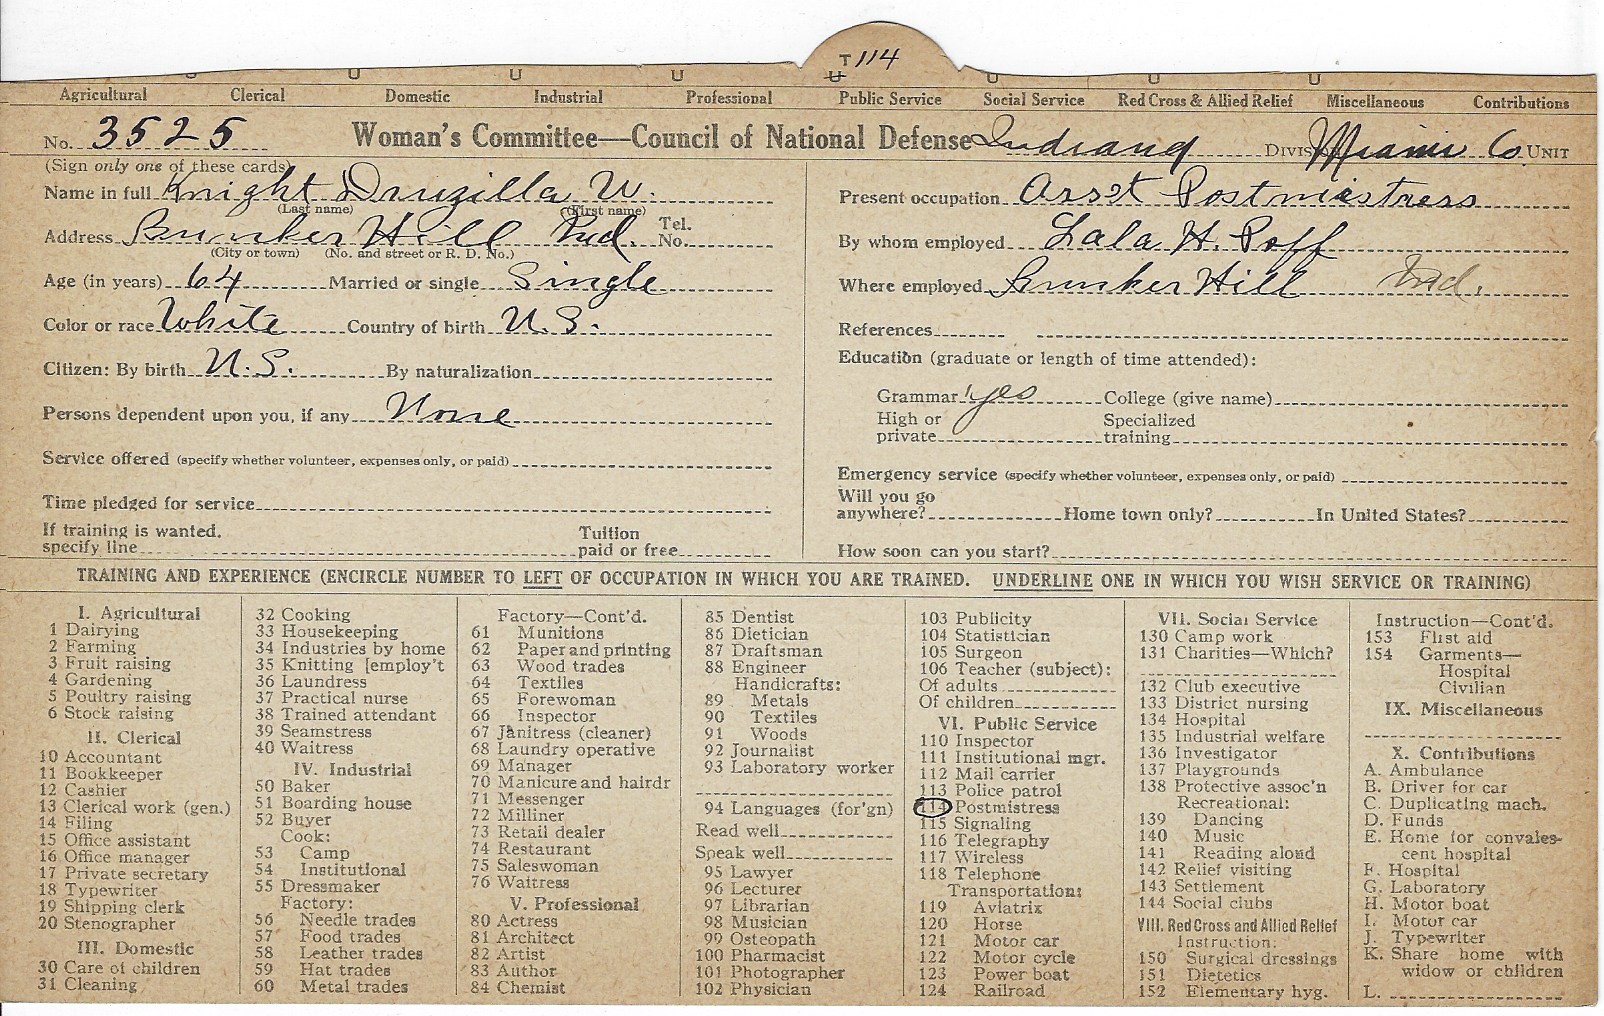 T 114
U U U U U U U U
Agricultural Clerical Domestic Industrial Professional Public Service Social Service Red Cross & Allied Relief Miscellaneous Contributions
No. 3525 Woman's Committee—Council of National Defense Indiana DIVISION Miami Co. UNIT
(Sign only one of these cards)
Name in full Knight Druzilla W.
(Last name) (First name)
Address Bunker Hill Ind. Tel. No.
(City or town) (No. and street or R. D. No.)
Age (in years) 64 Married or single Single
Color or race White Country of birth U.S.
Citizen: By birth U.S. By naturalization
Persons dependent upon you, if any None
Service offered (specify whether volunteer, expenses only, or paid)
Time pledged for service
If training is wanted,
specify line Tuition paid or free
Present occupation Asst Postmistress
By whom employed Lala H. Poff
Where employed Bunker Hill Ind.
References
Education (graduate or length of time attended):
Grammar yes College (give name)
High or private Specialized training
Emergency service (specify whether volunteer, expenses only, or paid)
Will you go
anywhere? Home town only? In United States?
How soon can you start?
TRAINING AND EXPERIENCE (ENCIRCLE NUMBER TO LEFT OF OCCUPATION IN WHICH YOU ARE TRAINED. UNDERLINE ONE IN WHICH YOU WISH SERVICE OR TRAINING)
I. Agricultural
1 Dairying
2 Farming
3 Fruit raising
4 Gardening
5 Poultry raising
6 Stock raising
II. Clerical
10 Accountant
11 Bookkeeper
12 Cashier
13 Clerical work (gen.)
14 Filing
15 Office assistant
16 Office manager
17 Private secretary
18 Typewriter
19 Shipping clerk
20 Stenographer
III. Domestic
30 Care of children
31 Cleaning
32 Cooking
33 Housekeeping
34 Industries by home
35 Knitting [employ't
36 Laundress
37 Practical nurse
38 Trained attendant
39 Seamstress
40 Waitress
IV. Industrial
50 Baker
51 Boarding house
52 Buyer
Cook:
53 Camp
54 Institutional
55 Dressmaker
Factory:
56 Needle trades
57 Food trades
58 Leather trades
59 Hat trades
60 Metal trades
Factory—Cont'd.
61 Munitions
62 Paper and printing
63 Wood trades
64 Textiles
65 Forewoman
66 Inspector
67 Janitress (cleaner)
68 Laundry operative
69 Manager
70 Manicure and hairdr
71 Messenger
72 Milliner
73 Retail dealer
74 Restaurant
75 Saleswoman
76 Waitress
V. Professional
80 Actress
81 Architect
82 Artist
83 Author
84 Chemist
85 Dentist
86 Dietician
87 Draftsman
88 Engineer
Handicrafts:
89 Metals
90 Textiles
91 Woods
92 Journalist
93 Laboratory worker
94 Languages (for'gn)
Read well
Speak well
95 Lawyer
96 Lecturer
97 Librarian
98 Musician
99 Osteopath
100 Pharmacist
101 Photographer
102 Physician
103 Publicity
104 Statistician
105 Surgeon
106 Teacher (subject):
Of adults
Of children
VI. Public Service
110 Inspector
111 Institutional mgr.
112 Mail carrier
113 Police patrol
114 Postmistress
115 Signaling
116 Telegraphy
117 Wireless
118 Telephone
Transportation:
119 Aviatrix
120 Horse
121 Motor car
122 Motor cycle
123 Power boat
124 Railroad
VII. Social Service
130 Camp work
131 Charities—Which?
132 Club executive
133 District nursing
134 Hospital
135 Industrial welfare
136 Investigator
137 Playgrounds
138 Protective assoc'n
Recreational:
139 Dancing
140 Music
141 Reading aloud
142 Relief visiting
143 Settlement
144 Social clubs
VIII. Red Cross and Allied Relief
Instruction:
150 Surgical dressings
151 Dietetics
152 Elementary hyg.
Instruction—Cont'd.
153 First aid
154 Garments—
Hospital
Civilian
IX. Miscellaneous
X. Contributions
A. Ambulance
B. Driver for car
C. Duplicating mach.
D. Funds
E. Home for convales-
cent hospital
F. Hospital
G. Laboratory
H. Motor boat
I. Motor car
J. Typewriter
K. Share home with
widow or children
L.